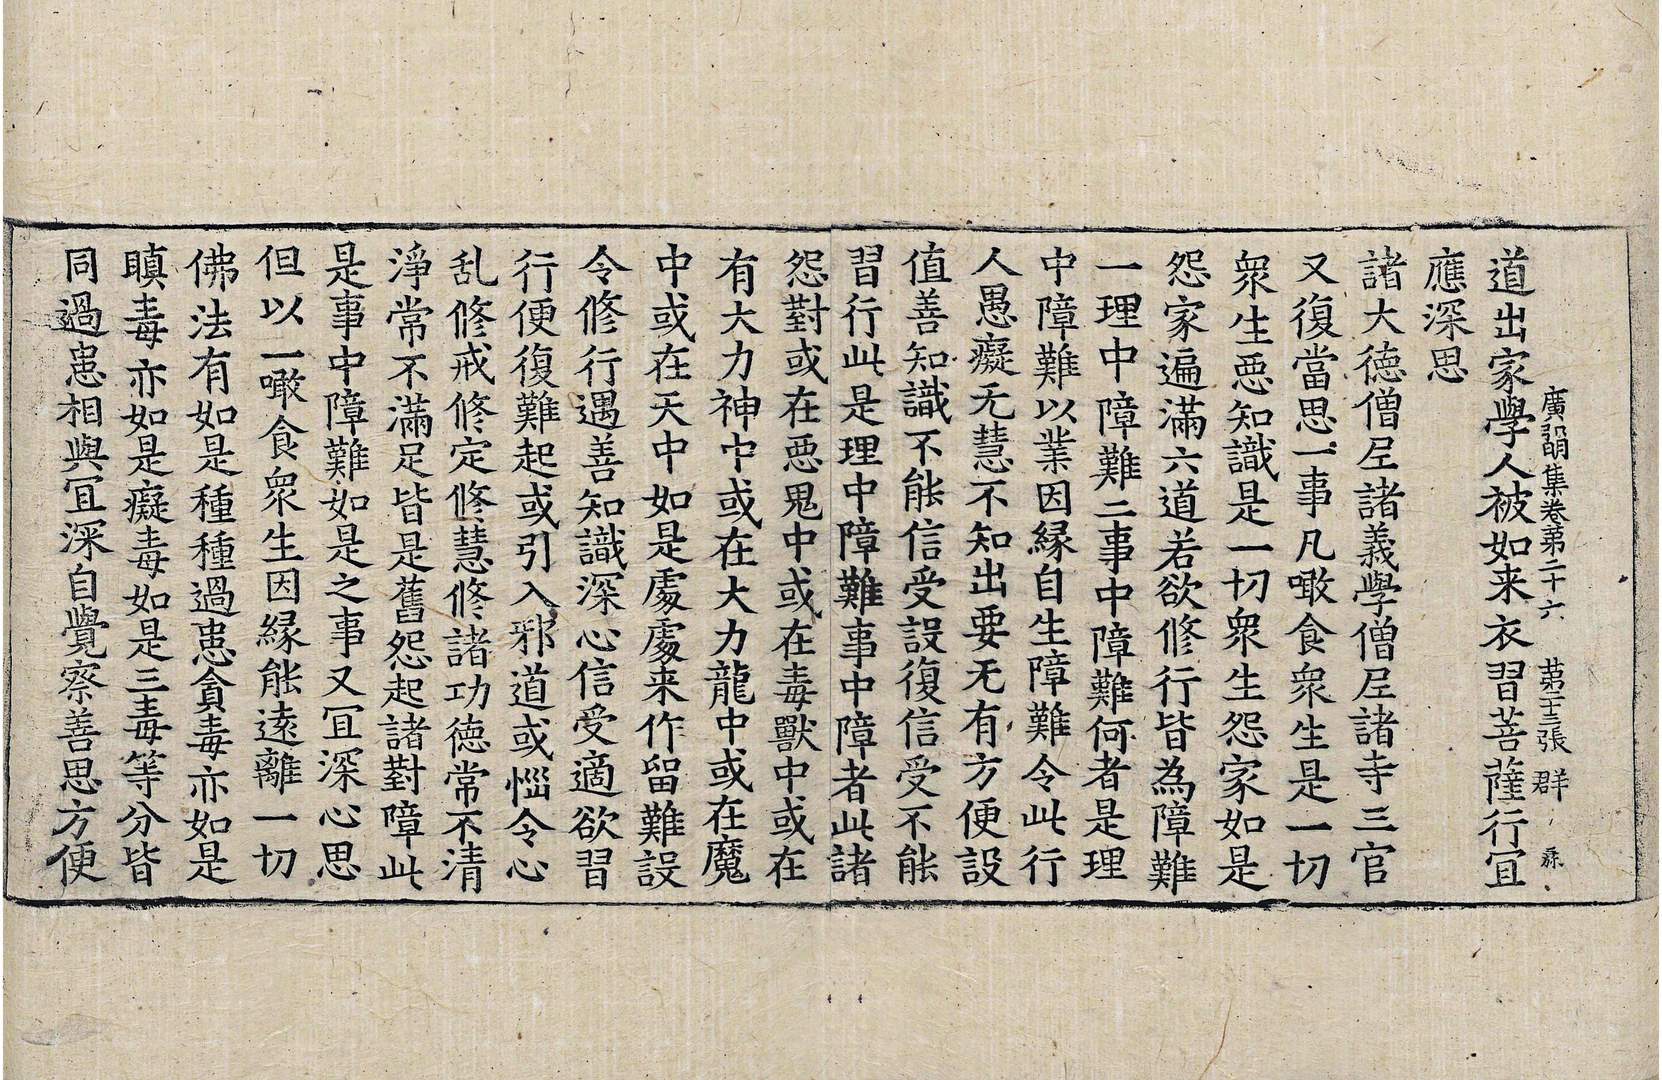 廣弘明集卷第二十六　第二十三張　群
道出家學人被如来衣習菩薩行冝
應深思
諸大德僧尼諸義學僧尼諸寺三官
又復當思一事凡噉食衆生是一切
衆生惡知識是一切衆生怨家如是
怨家遍滿六道若欲修行皆為障難
一理中障難二事中障難何者是理
中障難以業因緣自生障難令此行
人愚癡无慧不知出要无有方便設
值善知識不能信受設復信受不能
習行此是理中障難事中障者此諸
怨對或在惡鬼中或在毒獸中或在
有大力神中或在大力龍中或在魔
中或在天中如是處處来作留難設
令修行遇善知識深心信受適欲習
行便復難起或引入邪道或惱令心
乱修戒修定修慧修諸功德常不清
淨常不滿足皆是舊怨起諸對障此
是事中障難如是之事又冝深心思
但以一噉食衆生因緣能遠離一切
佛法有如是種種過患貪毒亦如是
瞋毒亦如是癡毒如是三毒等分皆
同過患相與冝深自覺察善思方便